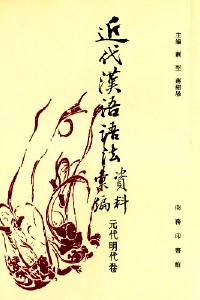 主編 劉堅 蔣紹愚
近代漢語語法
資料
彙編
元代明代卷
商務印書館